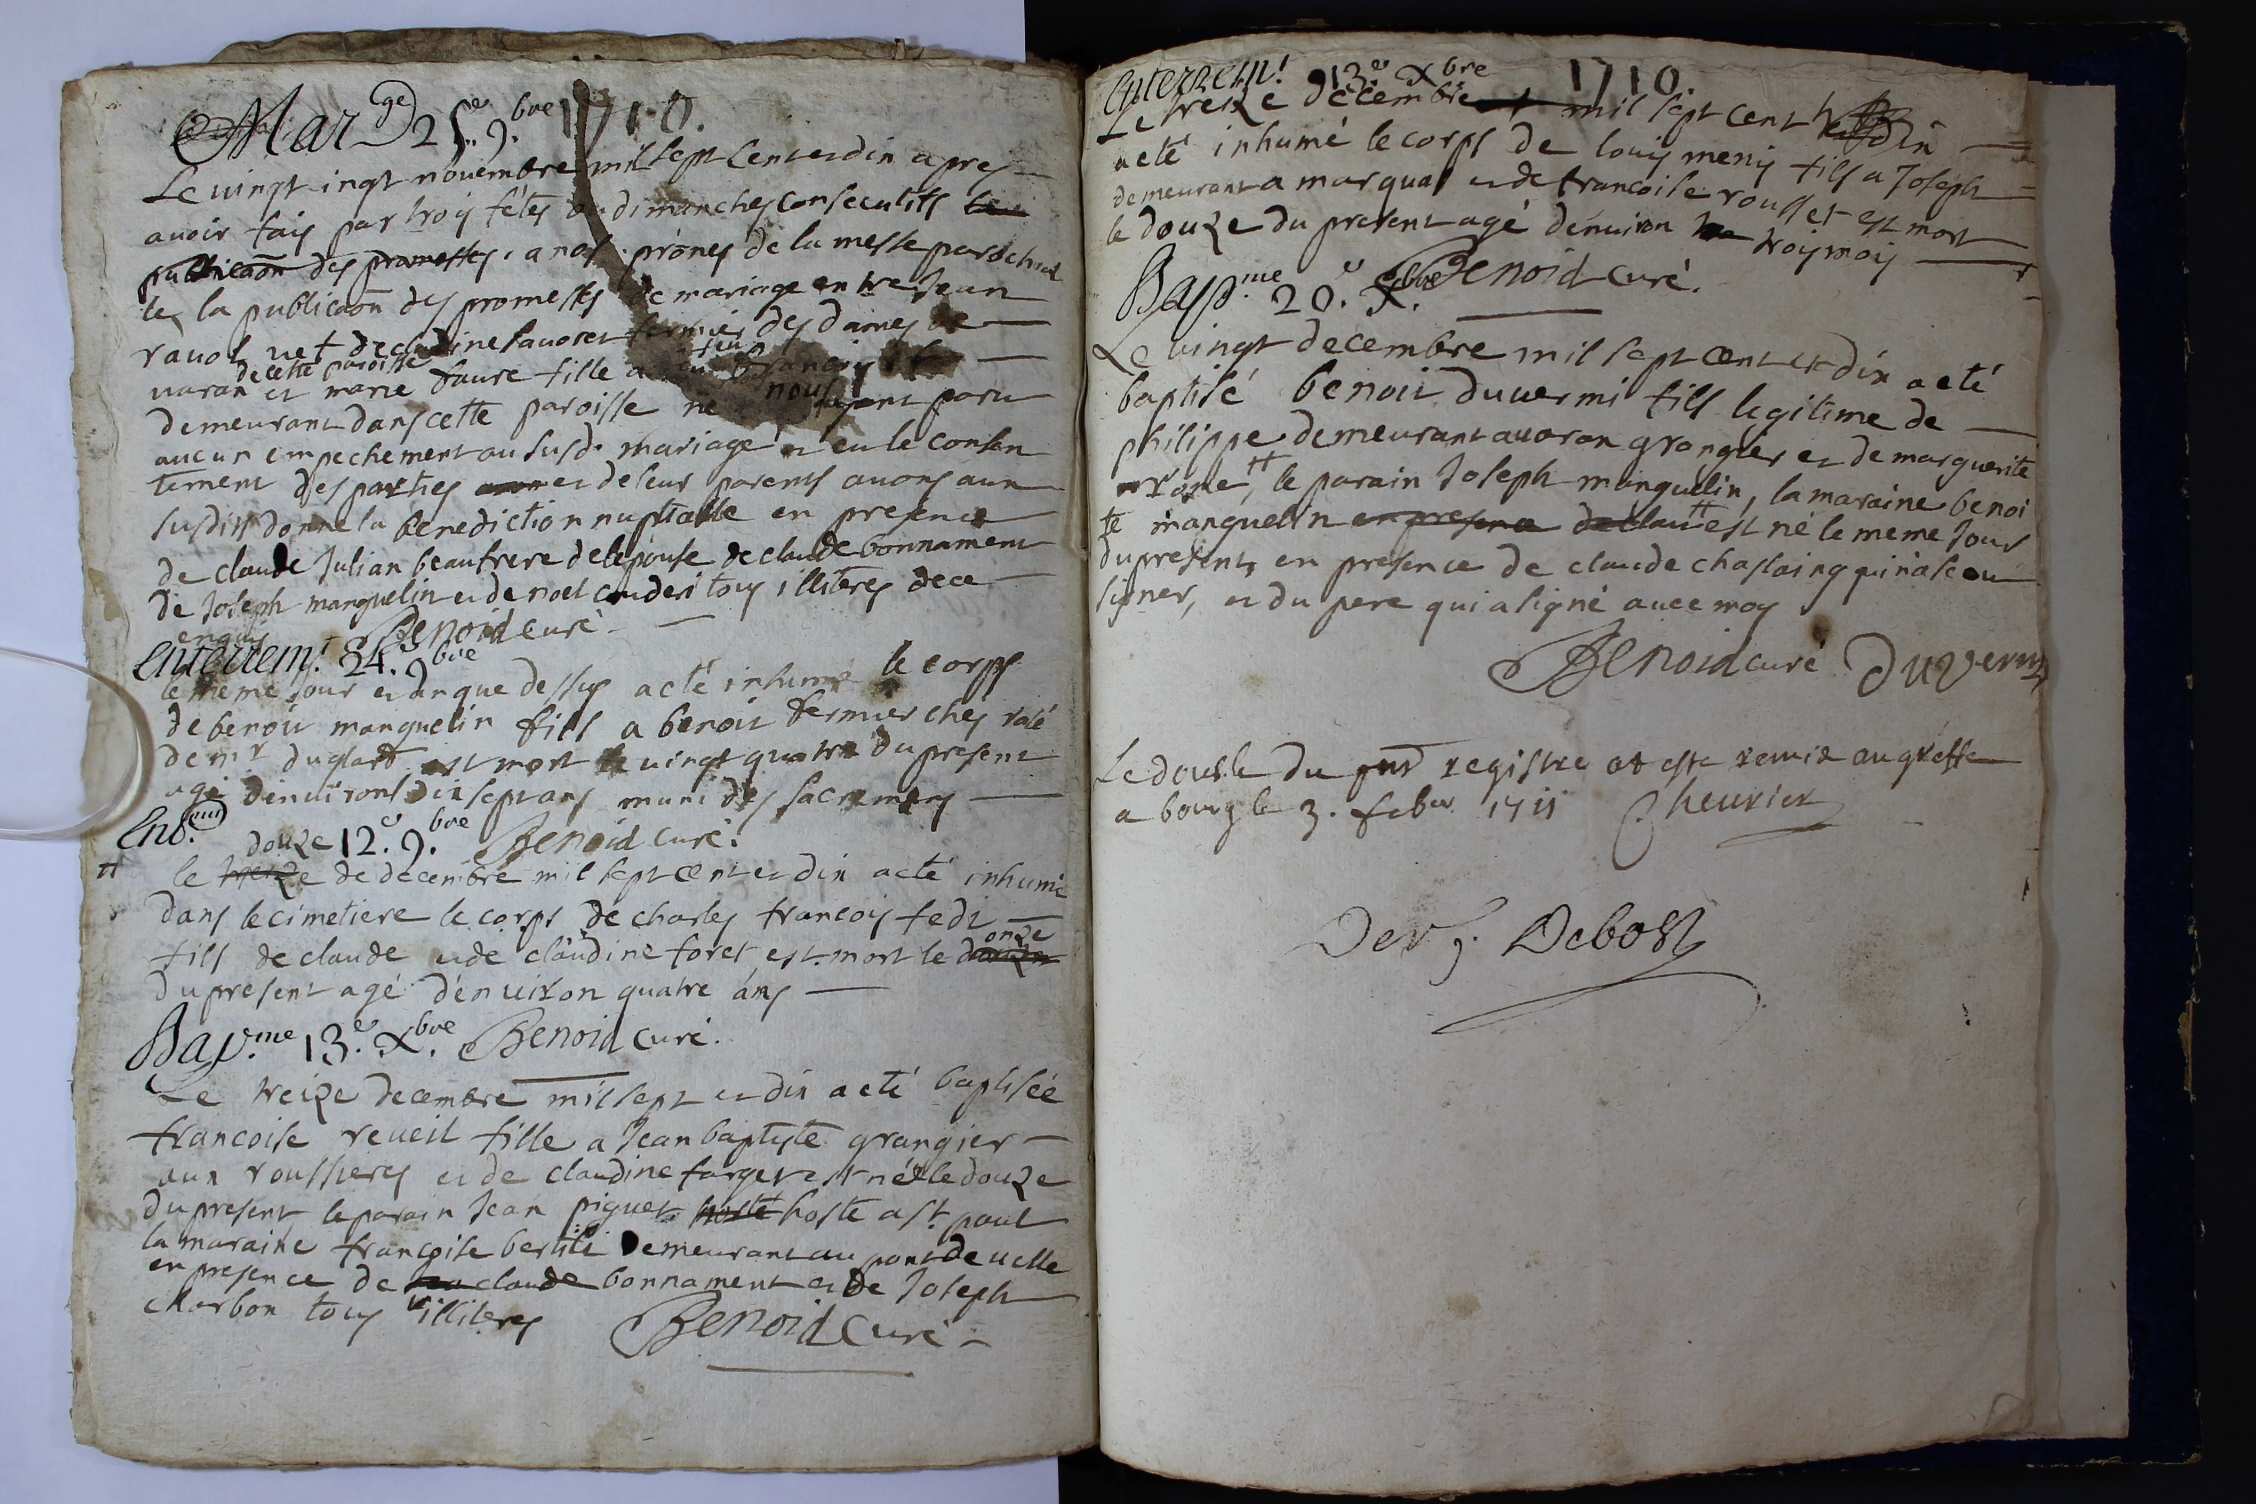 Mar.ge 25.e 9.bre 1710.
Le vingt ingt novembre mil sept cent et dix apres
avoir fais par trois fétes ou dimanches consecutifs
publicaõn des promesses, a nos prônes de la messe parochial
les la publicaõn des promesses de mariage entre Jean
ravot ve de claudine savoret fermier des dames de
de cette paroisse feu
varan et marie faure fille a francois
demeurant dans cette paroisse ne nous ayant paru
aucun empechement au susd. mariage et eu le consen
tement des parties et de leur parents avons aux
susdits donne la benediction nuptialle en presence
de claude Julian beaufrere de lepouse de claude bonnament
de Joseph manguelin et de noel couderi tous illiteres de ce
enquis Benoid curé
Enterrem.t 24. 9.bre
le meme jour et an que dessus a eté inhumé le corps
de benoit manguelin fils a benoit fermier ches
de mr duglard est mort le vingt quatre du present
agé d'environs dix sept ans muni des sacremens
douze 12.e 9.bre Benoid curé.
le treize de decembre mil sept cent et dix a eté inhumé
dans le cimetiere le corps de charles francois fedi
onze
fils de claude et de claudine foret est mort le douze
du present agé d'environ quatre ans
Bap.me 13.e X.bre Benoid curé.
Le treize decembre mil sept et dix a eté baptisée
francoise reveil fille a Jean baptiste grangier
aux roussieres et de claudine farget est née le douze
du present le parain Jean piquet hoste hoste a st. paul
la maraine françoise demeurant au pont de velle
en presence de claude bonnament et de Joseph
charbon tous illiteres Benoid curé
Enterrem.t 13.e Xbre 1710.
Le treize decembre mil sept cent dix
a eté inhumé le corps de louis menis fils a Joseph
demeurant a et de francoise rousset est mort
le douze du present agé d'environ trois mois
Bap.me 20.e X.bre Benoid curé.
Le vingt decembre mil sept cent et dix a eté
baptisé benoit duvermi fils legitime de
philippe demeurant a voran grangier et de marguerite
le parain Joseph manguelin, la maraine benoi
te manguelin en presence de est né le meme jour
du present, en presence de claude chaslaing qui n'a sceu
signer, et du pere qui a signé avec moy
Benoid curé
Le double du pnt registre at esté remis au greffe
a bourg le 3. feber 1711 Cheurier
Debost